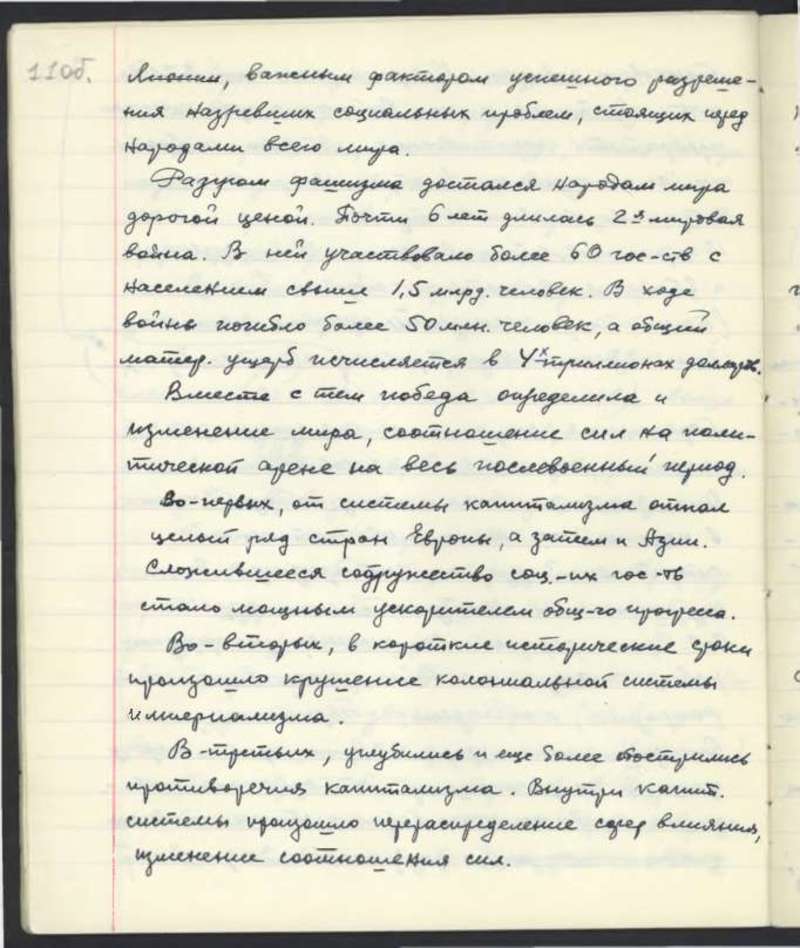 110б.
Японии, важным фактором успешного разреше-
ния назревших социальных проблем, стоящих перед
народами всего мира.
Разгром фашизма достался народам мира
дорогой ценой. Почти 6 лет длилась 2я мировая
война. В ней участвовало более 60 гос-ств с
населением свыше 1,5 млрд. человек. В ходе
войны погибло более 50 млн. человек, а общий
матер. ущерб исчисляется в 4х триллионах долларов.
Вместе с тем победа определила и
изменение мира, соотношение сил на поли-
тической арене на весь послевоенный период.
Во-первых, от системы капитализма отпал
целый ряд стран Европы, а затем и Азии.
Сложившееся содружество соц-их гос-тв
стало мощным ускорителем общ-го прогресса.
Во-вторых, в короткие исторические сроки
произошло крушение колониальной системы
империализма.
В-третьих, углубились и еще более обострились
противоречия капитализма. Внутри капит.
системы произошло перераспределение сфер влияния,
изменение соотношения сил.